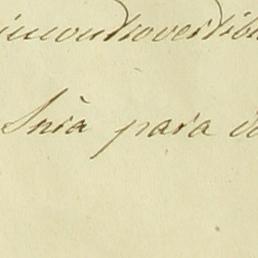 incontrovertibl
Snra para